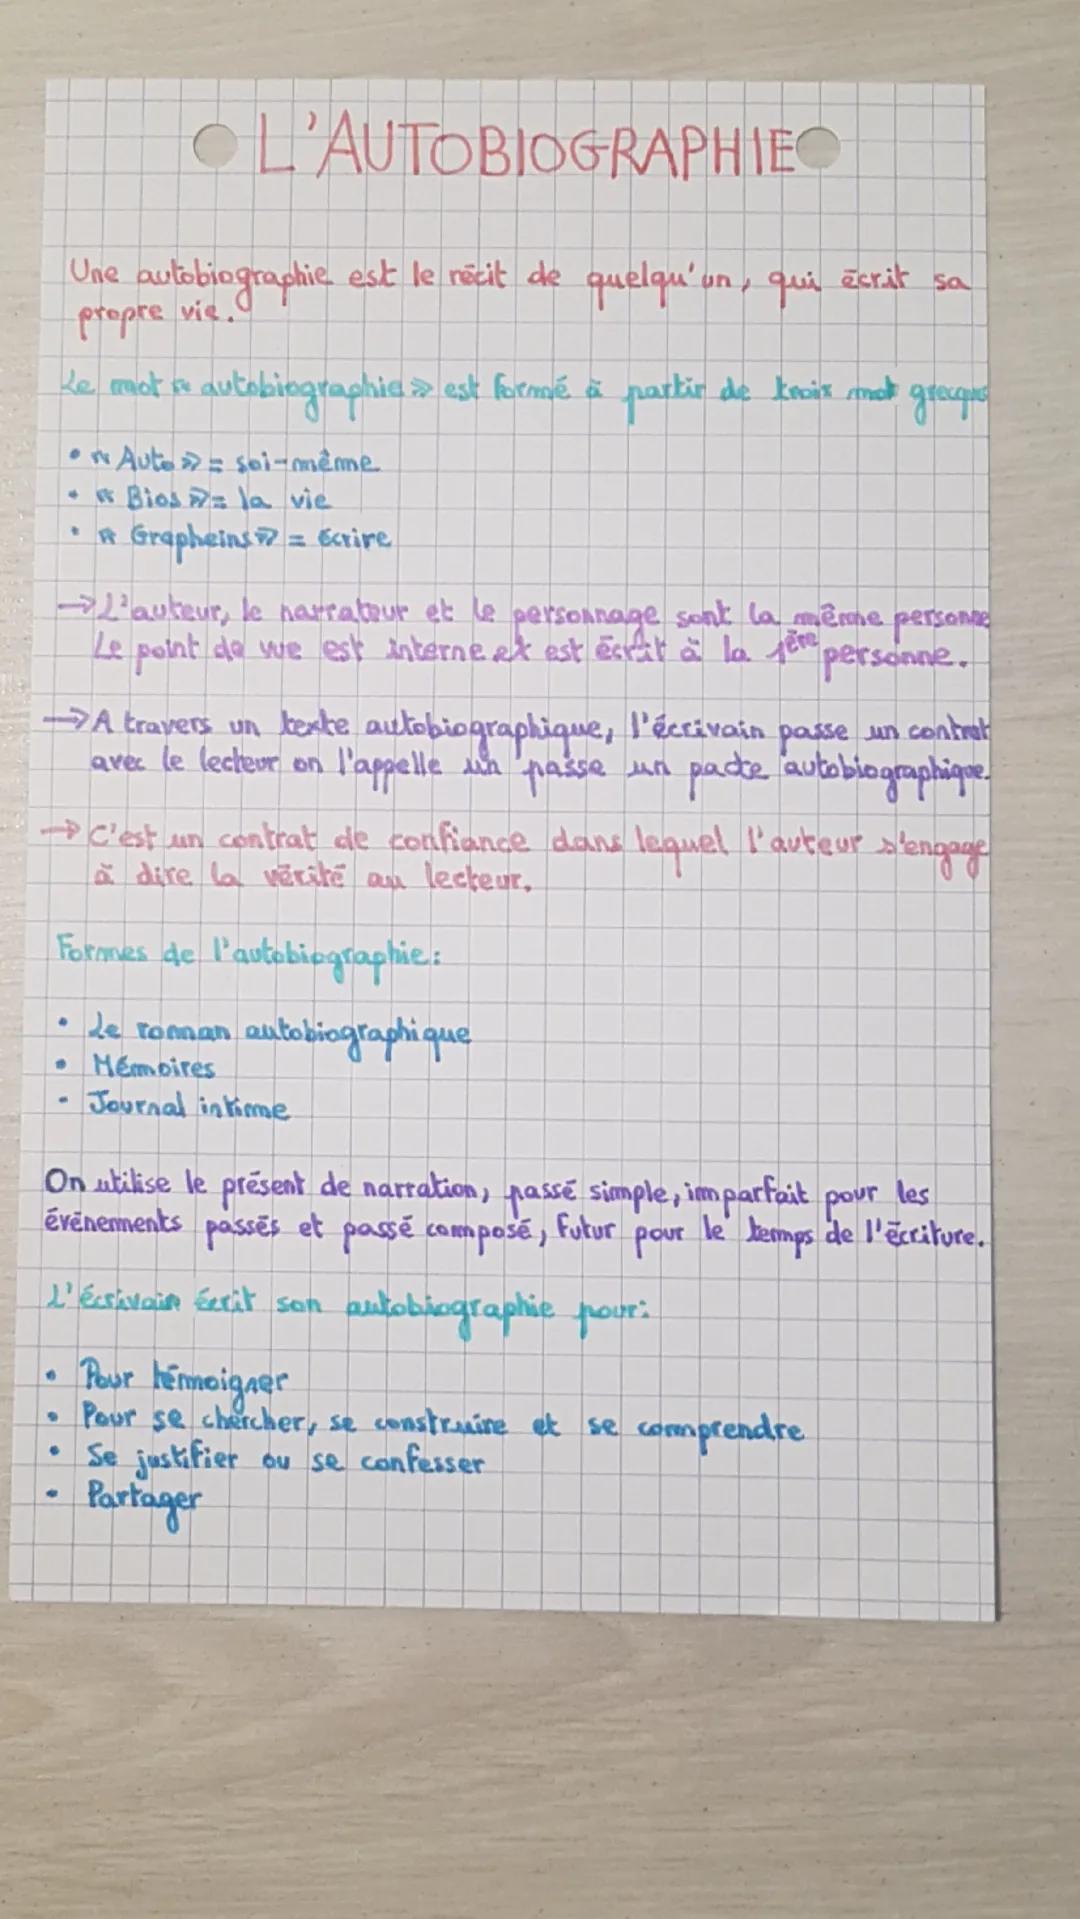 L'AUTOBIOGRAPHIE
Une autobiographie est le récit de quelqu'un, qui écrit sa
propre vie.
Le mot « autobiographie » est formé à partir de trois mot grecques
• « Auto » = soi-même
• « Bios » = la vie
• « Grapheins » = écrire
→ L'auteur, le narrateur et le personnage sont la même personne
Le point de vue est interne et est écrit à la 1ère personne.
→ A travers un texte autobiographique, l'écrivain passe un contrat
avec le lecteur on l'appelle un "passe un pacte autobiographique.
→ C'est un contrat de confiance dans lequel l'auteur s'engage
à dire la vérité au lecteur.
Formes de l'autobiographie :
• Le roman autobiographique
• Mémoires
• Journal intime
On utilise le présent de narration, passé simple, imparfait pour les
événements passés et passé composé, futur pour le temps de l'écriture.
L'écrivain écrit son autobiographie pour :
• Pour témoigner
• Pour se chercher, se construire et se comprendre
• Se justifier ou se confesser
• Partager